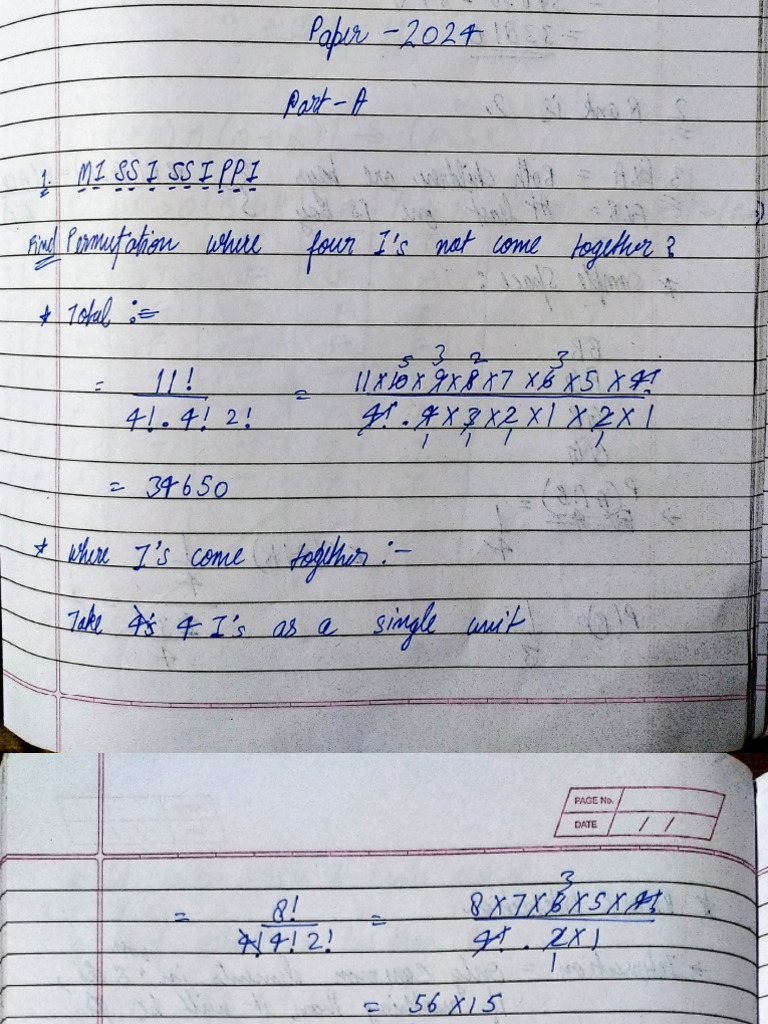 Paper - 2024
Part-A
1. MISSISSIPPI
Find Permutation where four I's not come together?
* Total :=
= 11! / 4! . 4! 2! = 11x10x9x8x7x6x5x4! / 4! . 4x3x2x1x2x1
5 3 2 3
1 1 1 1
= 34650
* where I's come together :-
Take 4's 4 I's as a single unit
PAGE No.
DATE / /
= 8! / 4! 4! 2! = 8x7x6x5x4! / 4! . 2x1
3
1
= 56x15